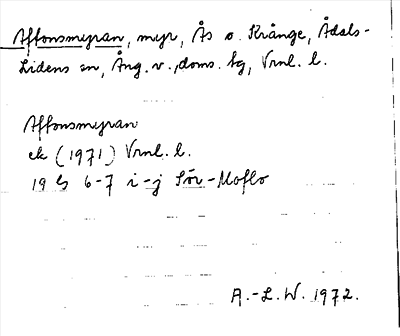 Affonsmyran, myr, Ås o. Krånge, Ådals-
Lidens sn, Ång. v., doms. hg, Vrnl. l.
Affonsmyran
ek (1971) Vrnl. l.
19 G 6-7 i-j Sör-Moflo
A.-L. W. 1972.